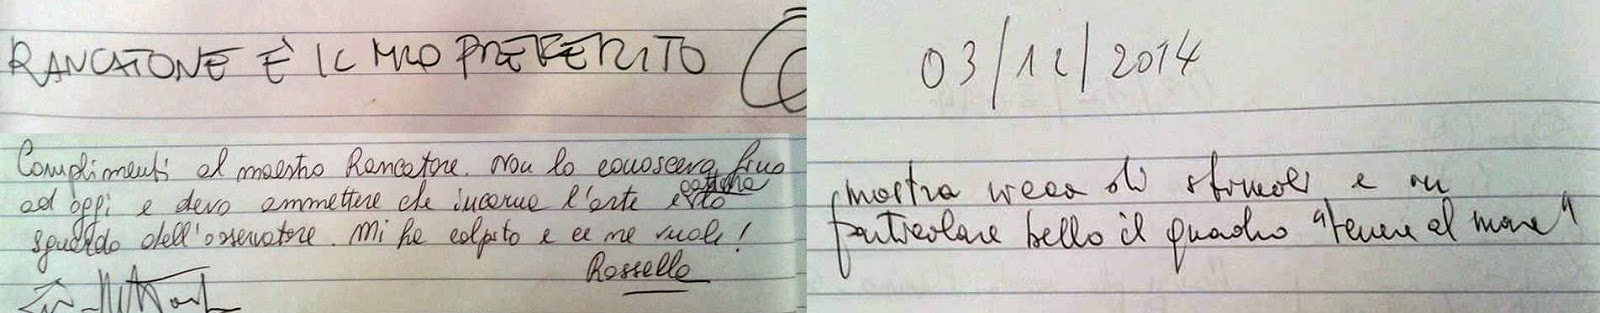 RANCATORE È IL MIO PREFERITO
Complimenti al maestro Rancatore. Non lo conoscevo fino
ad oggi e devo ammettere che incarna l'arte e lo
sguardo dell'osservatore. Mi ha colpito e ce ne vuole!
Rossella
03/12/2014
mostra ricca di stimoli e in
particolare bello il quadro "tenere al mare"